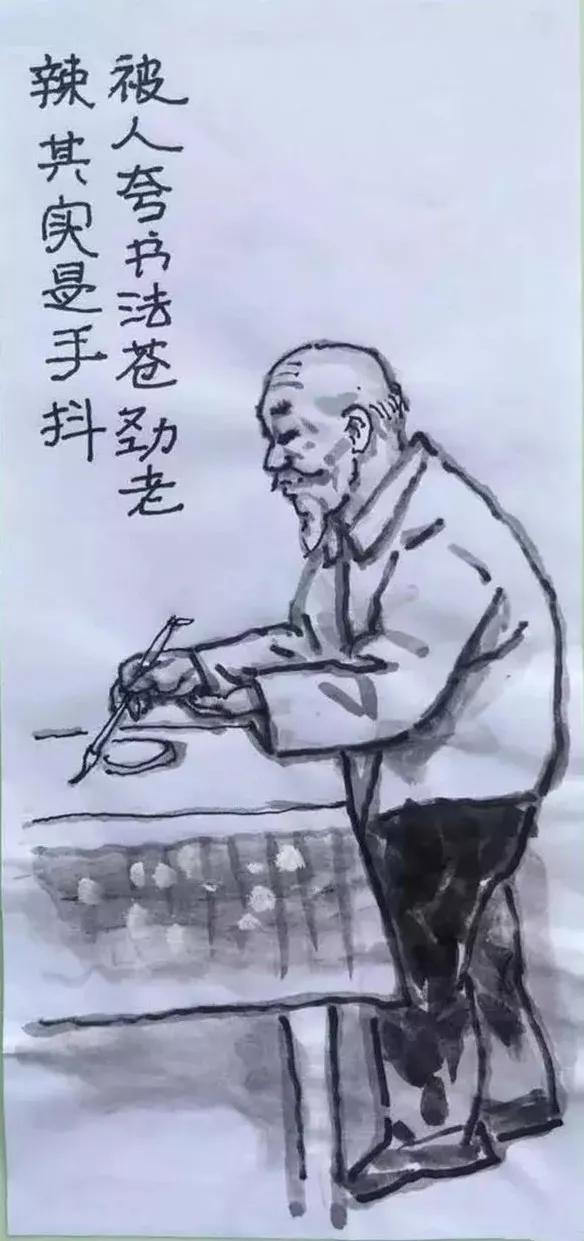 被人夸书法苍劲老
辣其实是手抖